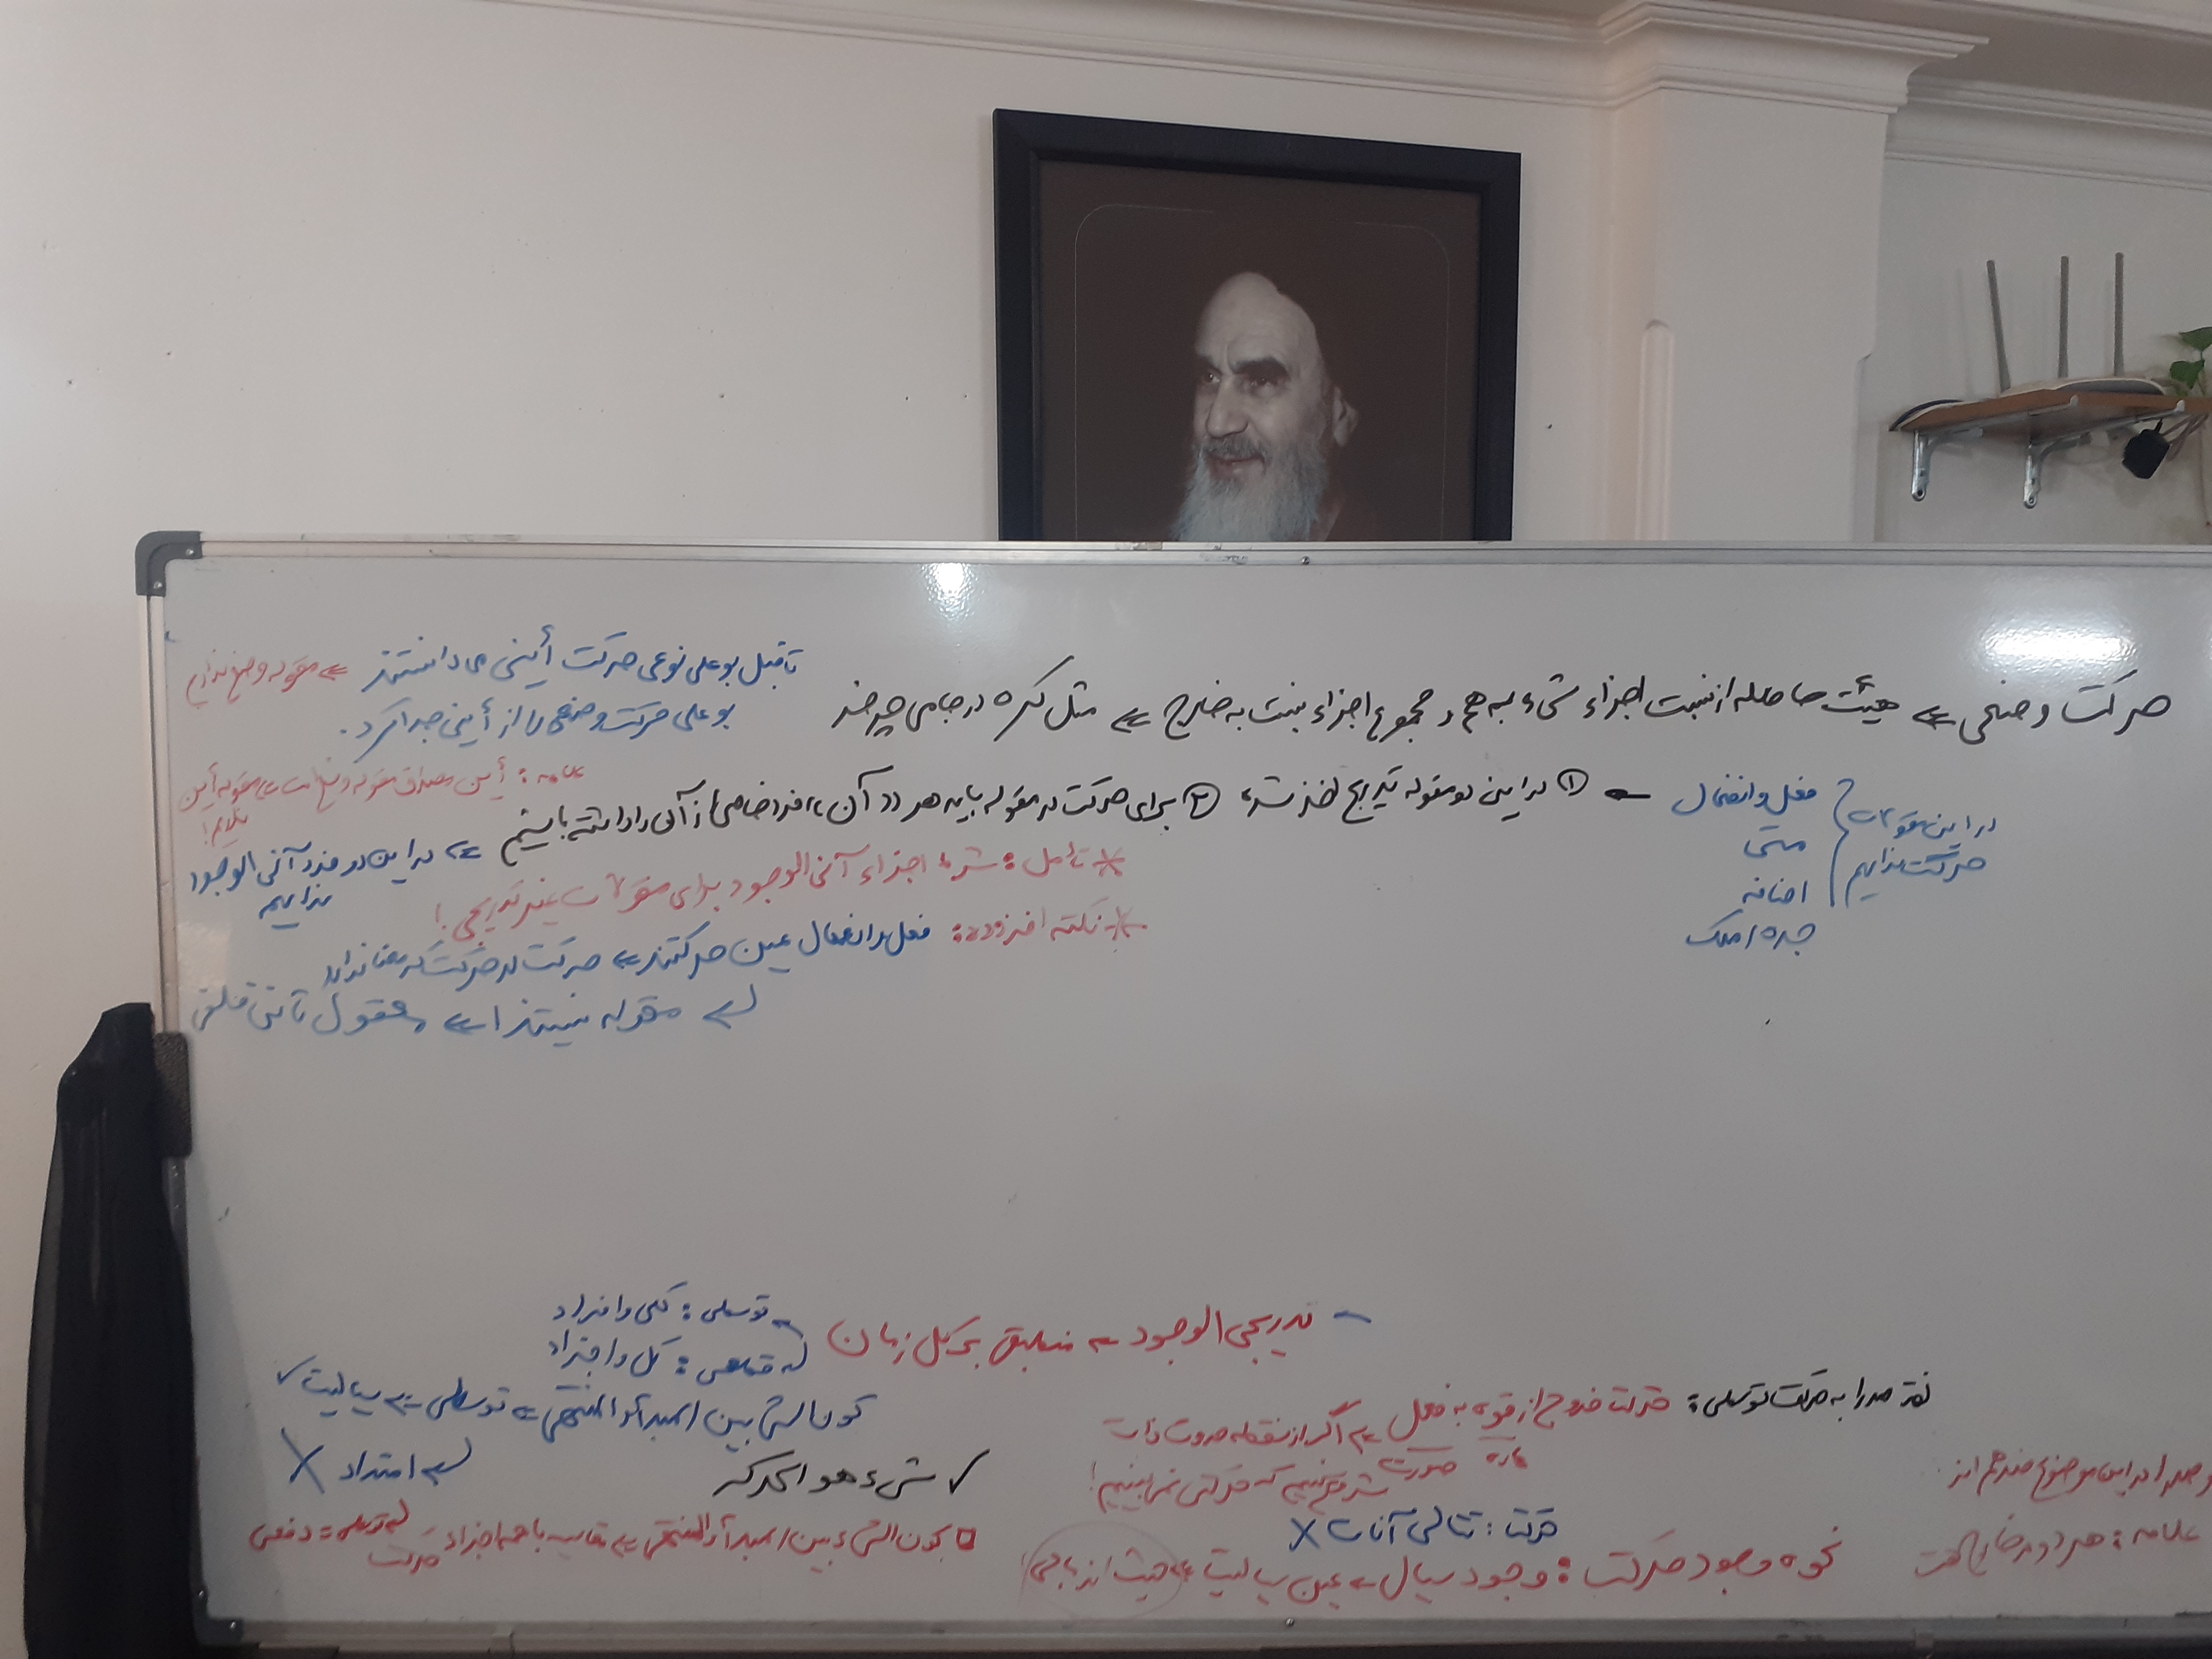 حرکت وضعی ⇐ هیئت حاصله از نسبت اجزاء شیء به هم و مجموع اجزاء نسبت به خارج ⇐ مثل کره در جای چرخد
تا قبل بوعلی نوعی حرکت أینی می دانستند ⇐ مقوله وضع نداریم
بوعلی حرکت وضعی را از أینی جدا کرد.
علامه: أین مصداق مقوله وضع است ⇐ مقوله أین نداریم!
در این مقولات حرکت نداریم
فعل و انفعال
متی
اضافه
جده / ملک
① در این دو مقوله تدریج اخذ شده ② برای حرکت در مقوله باید هر در «آن» فرد خاصی از آن را داشته باشیم ⇐ در این دو فرد آنی الوجود نداریم
* تأمل: شرط اجزاء آنی الوجود برای مقولات غیر تدریجی!
* نکته افزوده: فعل و انفعال عین حرکتند ⇐ حرکت در حرکت که معنا ندارد
مقوله نیستند! ⇐ معقول ثانی فلسفی
تدریجی الوجود ← منطبق بر کل زمان
توسطی: کلی و افراد
قطعی: کل و اجزاء
کون الشیء بین المبدأ و المنتهی ← توسطی ← سیالیت ✓
امتداد X
نقد صدرا به حرکت توسطی: حرکت خروج از قوه به فعل ← اگر از نقطه
ماده صورت
شروع کنیم که حرکتی نمی بینیم!
✓ شیء هو الحرکه
حرکت: تتالی آنات X
کون الشیء بین المبدأ و المنتهی ← مقایسه با همه اجزاء حرکت
توسطی: دفعی
صدرا در این موضوع
علامه: هر دو در خارج است
نحوه وجود حرکت: وجود سیال ← عین سیالیت